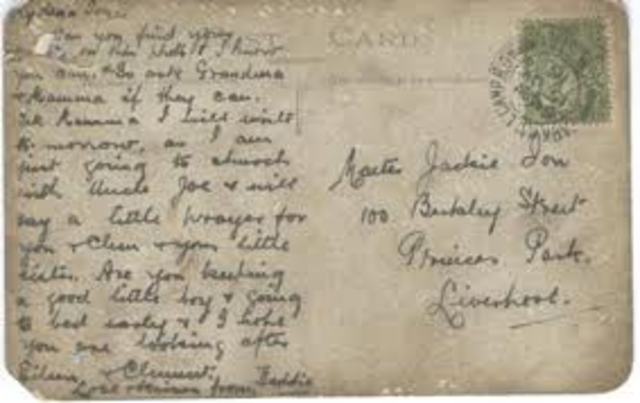 My dear Son:
Can you find your
on this photo & I know
you can. & So ask Grandma
& Mamma if they can.
Tell Mamma I will write
to morrow, as I am
just going to church
with Uncle Joe & will
say a little prayer for
you & Clem & your little
sister. Are you keeping
a good little boy & going
to bed early & I hope
you are looking after
Eileen & Clement.
Love & kisses from Daddie
POST CARD
Master Jackie Ion
100 Berkeley Street
Princes Park.
Liverpool.